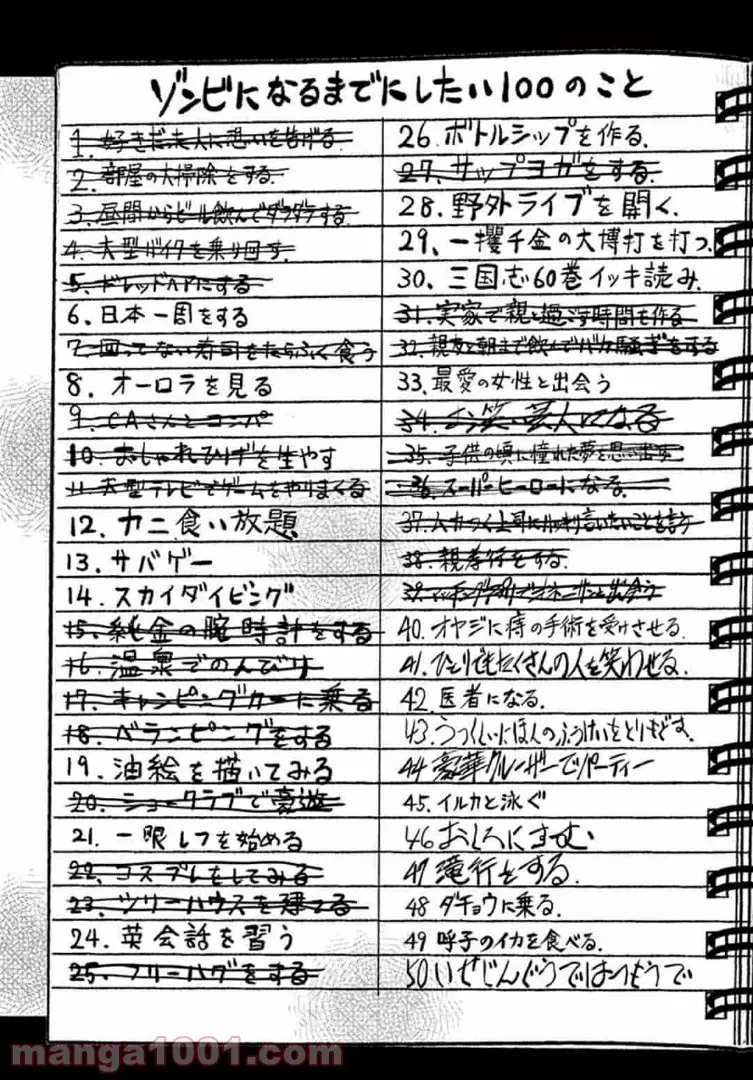 ゾンビになるまでにしたい100のこと
1. 好きだった人に想いを告げる
2. 部屋の大掃除をする
3. 昼間からビール飲んでダラダラする
4. 大型バイクを乗り回す
5. ドレッドヘアにする
6. 日本一周をする
7. 回ってない寿司をたらふく食う
8. オーロラを見る
9. CAさんとコンパ
10. おしゃれひげを生やす
11. 大型テレビでゲームをやりまくる
12. カニ食い放題
13. サバゲー
14. スカイダイビング
15. 純金の腕時計をする
16. 温泉でのんびり
17. キャンピングカーに乗る
18. ベランピングをする
19. 油絵を描いてみる
20. ショークラブで豪遊
21. 一眼レフを始める
22. コスプレをしてみる
23. ツリーハウスを建てる
24. 英会話を習う
25. フリーハグをする
26. ボトルシップを作る.
27. サップヨガをする.
28. 野外ライブを開く.
29. 一攫千金の大博打を打つ.
30. 三国志60巻イッキ読み.
31. 実家で親と過ごす時間を作る
32. 親友と朝まで飲んでバカ騒ぎをする
33. 最愛の女性と出会う
34. お笑い芸人になる
35. 子供の頃に憧れた夢を思い出す
36. スーパーヒーローになる.
37. ムカつく上司にハッキリ言いたいことを言う
38. 親孝行をする.
39. マッチングアプリで
40. オヤジに痔の手術を受けさせる.
41. ひとりでもたくさんの人を笑わせる.
42. 医者になる.
43. うつくしいにほんのふうけいをとりもどす.
44 豪華クルーザーでパーティー
45. イルカと泳ぐ
46 おしろにすむ
47 滝行をする.
48 ダチョウに乗る.
49 呼子のイカを食べる.
50 いせじんぐうではつもうで
manga1001.com